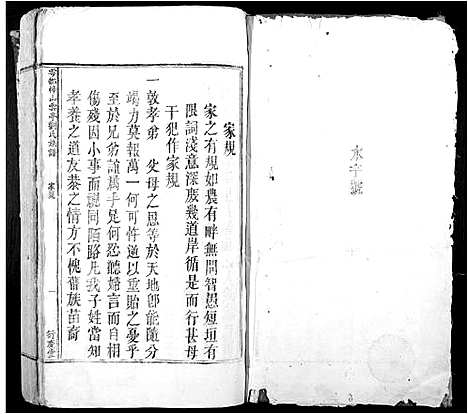 永字號
家規
家之有規如農有畔無間智愚短垣有
限詞淺意深庶幾道岸循是而行甚毋
干犯作家規
一敦孝弟 父母之恩等於天地即能隨分
竭力莫報萬一何可忤逆以重貽之憂乎
至於兄弟誼屬手足何忍聽婦言而自相
傷殘因小事而視同陌路凡我子姓當知
孝養之道友恭之情方不愧舊族苗裔
氏族譜 家規 一